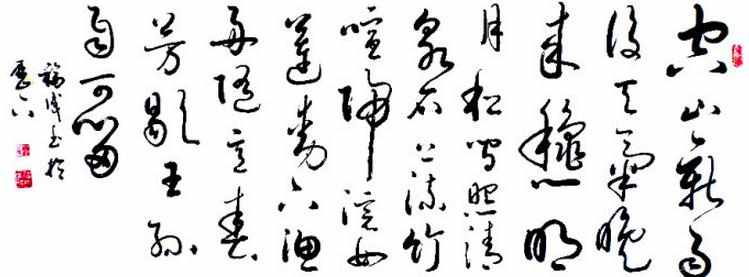 空山新雨
後天氣晚
来秋明
月松间照清
泉石上流竹
喧歸浣女
莲动下渔
舟随意春
芳歇王孙
自可留
书於